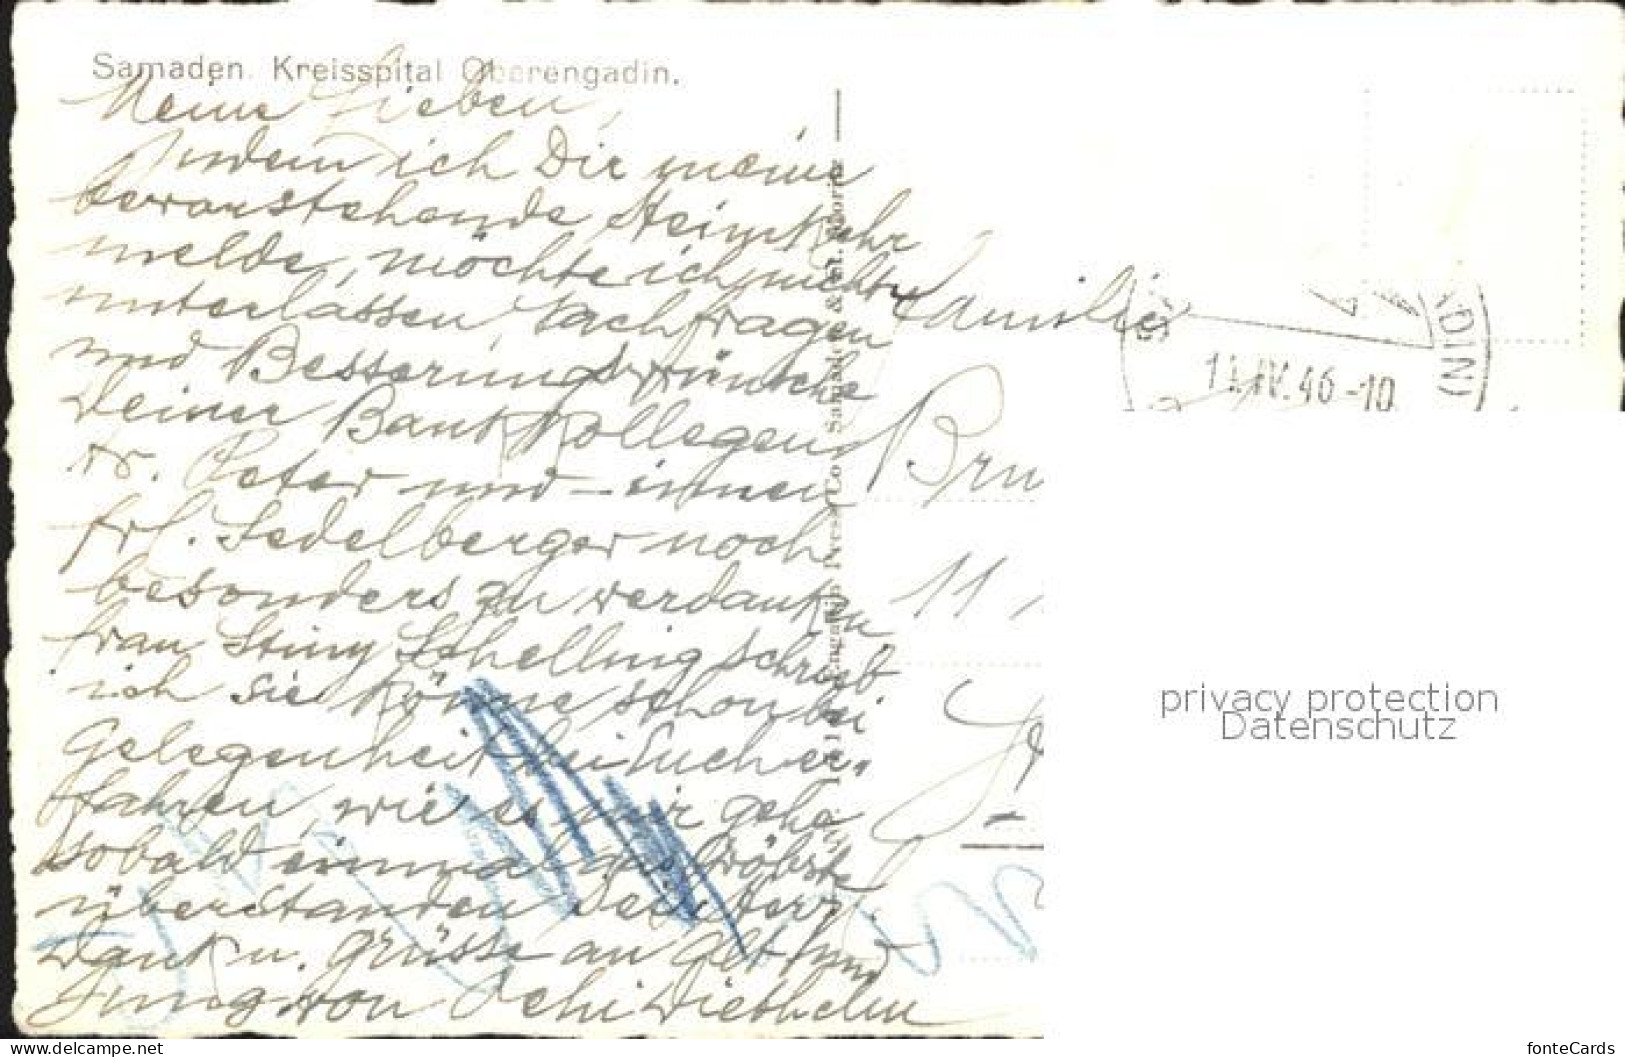 Samaden. Kreisspital Oberengadin.
Meine Lieben,
Indem ich Dir meine
bevorstehende Heimkehr
melde, möchte ich nicht
unterlassen, Nachfragen
und Besserungswünsche
Deiner Bankkollegen
Dr. Peter und
Frl. Sedelberger noch
besonders zu verdanken
Frau Stiny Schelling schrieb
ich sie könne schon bei
Gelegenheit bei Euch er-
fahren, wie es mir gehe
sobald einmal das Gröbste
überstanden sei. Herzl.
Dank u. Grüsse an Alt und
Jung von Diethelm
Familie
Bru
11
11.IV.46-10
DIN)
privacy protection
Datenschutz
http://www.ansichtskarten-center.de
fonteCards